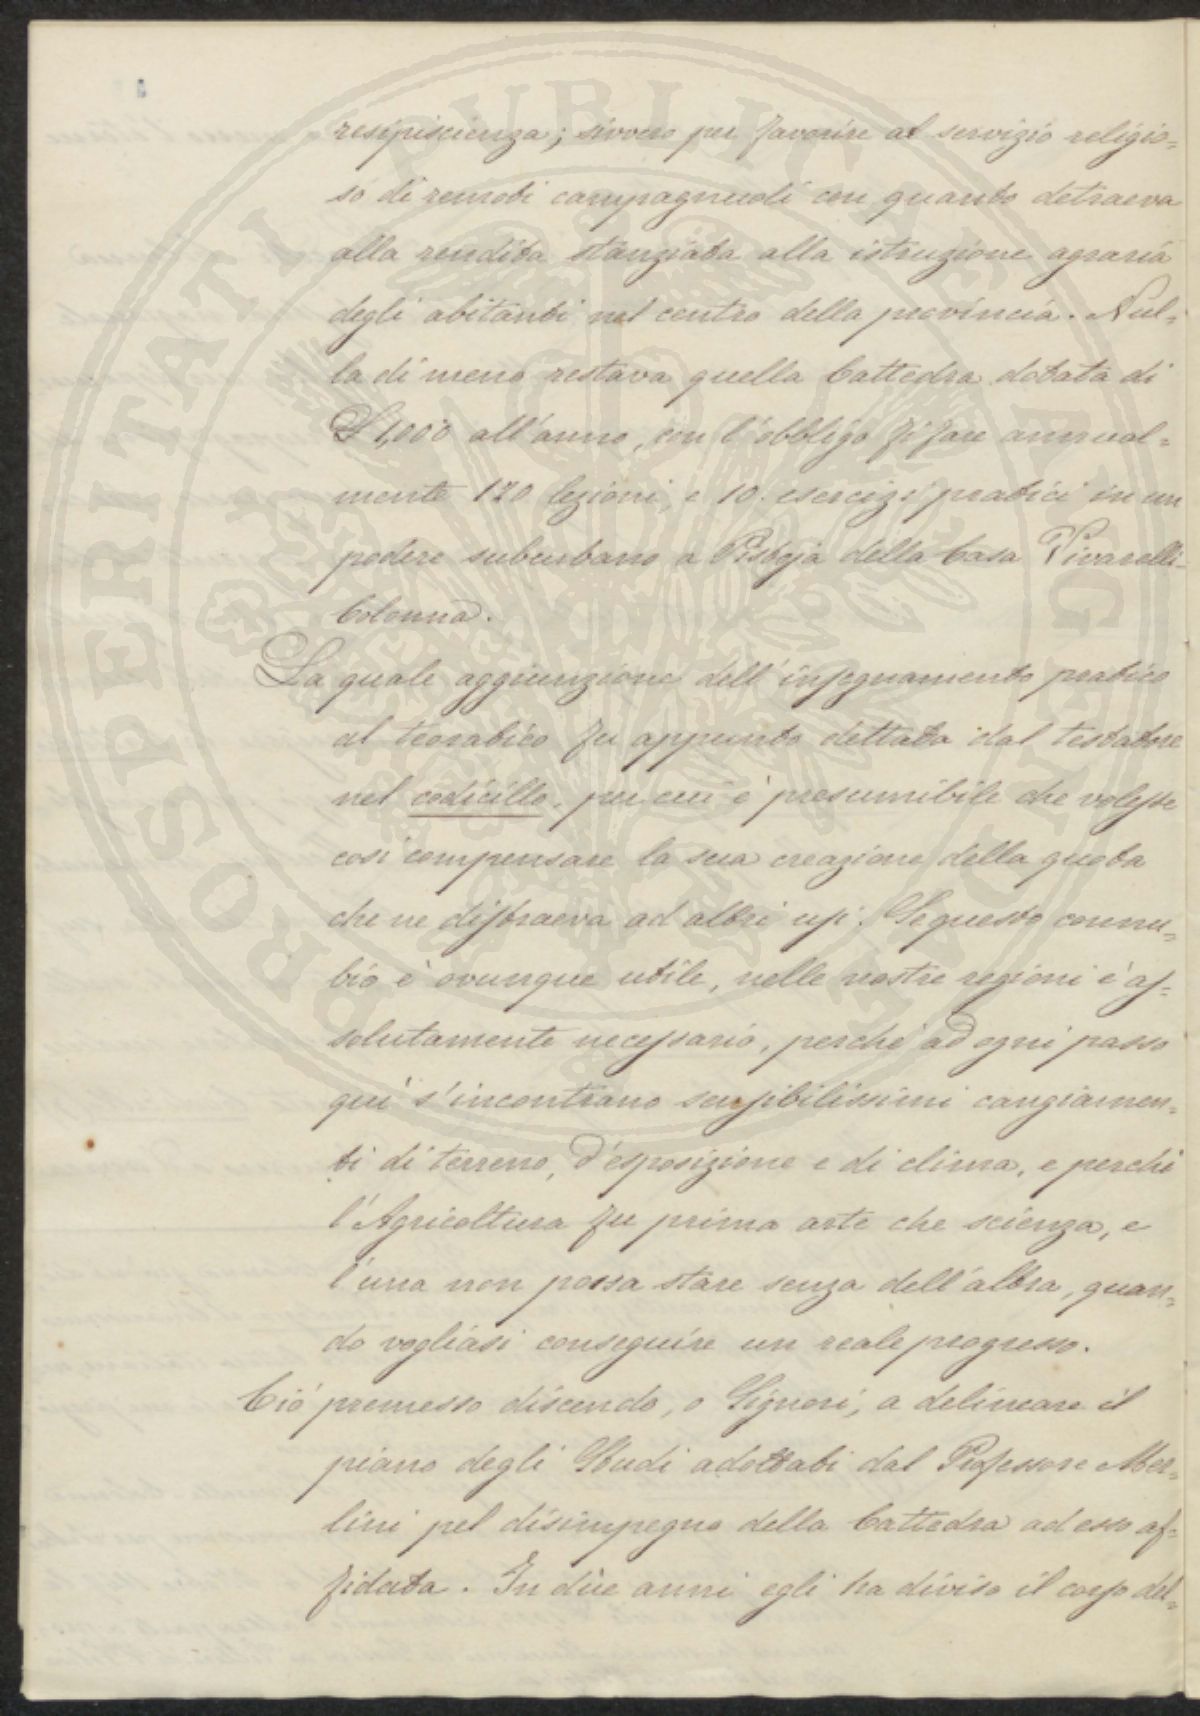 resipiscienza; sivvero per favorire al servizio religio=
so di remoti campagnuoli con quanto detraeva
alla rendita stanziata alla istruzione agraria
degli abitanti nel centro della provincia. Nul=
la di meno restava quella Cattedra dotata di
£ 1,000 all'anno, con l'obbligo di fare annual=
mente 120 lezioni, e 10 esercizi pratici in un
podere suburbano a Pistoja della Casa Vivarelli-
Colonna.
La quale aggiunzione dell'insegnamento pratico
al teoratico fu appunto dettata dal testatore
nel codicillo, per cui è presumibile che volesse
così compensare la sua creazione della quota
che ne distraeva ad altri usi. Se questo connu=
bio è ovunque utile, nelle nostre regioni è as=
solutamente necessario, perchè ad ogni passo
quì s'incontrano sensibilissimi cangiamen=
ti di terreno, d'esposizione e di clima, e perchè
l'Agricoltura fu prima arte che scienza, e
l'una non possa stare senza dell'altra, quan=
do vogliasi conseguire un reale progresso.
Ciò premesso discendo, o Signori, a delineare il
piano degli Studi adottati dal Professore Mer=
lini pel disimpegno della Cattedra ad esso af=
fidata. In due anni egli ha diviso il corso del=
PROSPERITATI PUBLICAE AUGENDAE